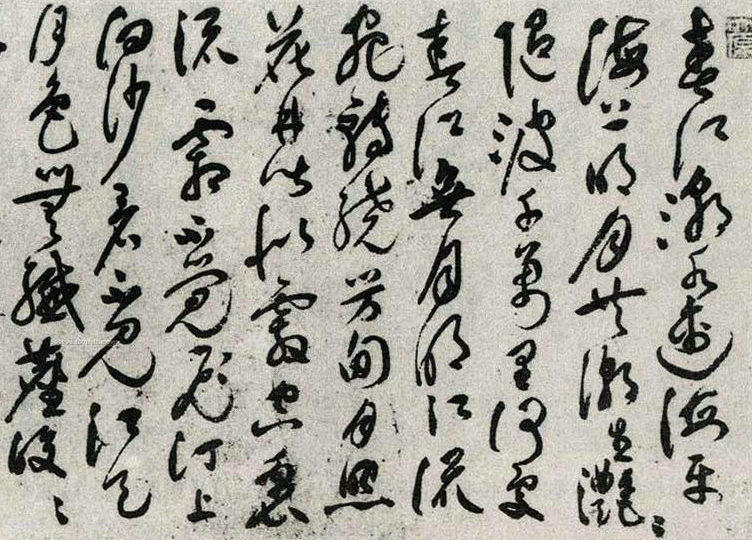 春江潮水連海平
海上明月共潮生灩〻
隨波千萬里何處
春江無月明江流
宛轉繞芳甸月照
花林皆似霰空裏
流霜不覺飛汀上
白沙看不見江天
月色無纖塵皎〻